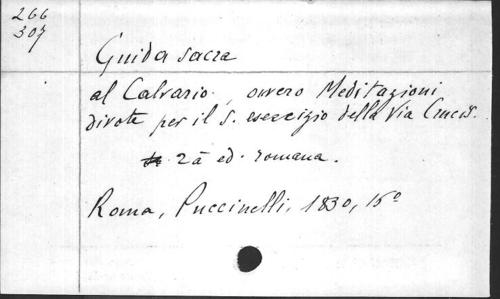 266
307
Guida sacra
al Calvario, ovvero Meditazioni
divote per il s. esercizio della Via Crucis.
2ª ed. romana.
Roma, Puccinelli, 1830, 16º